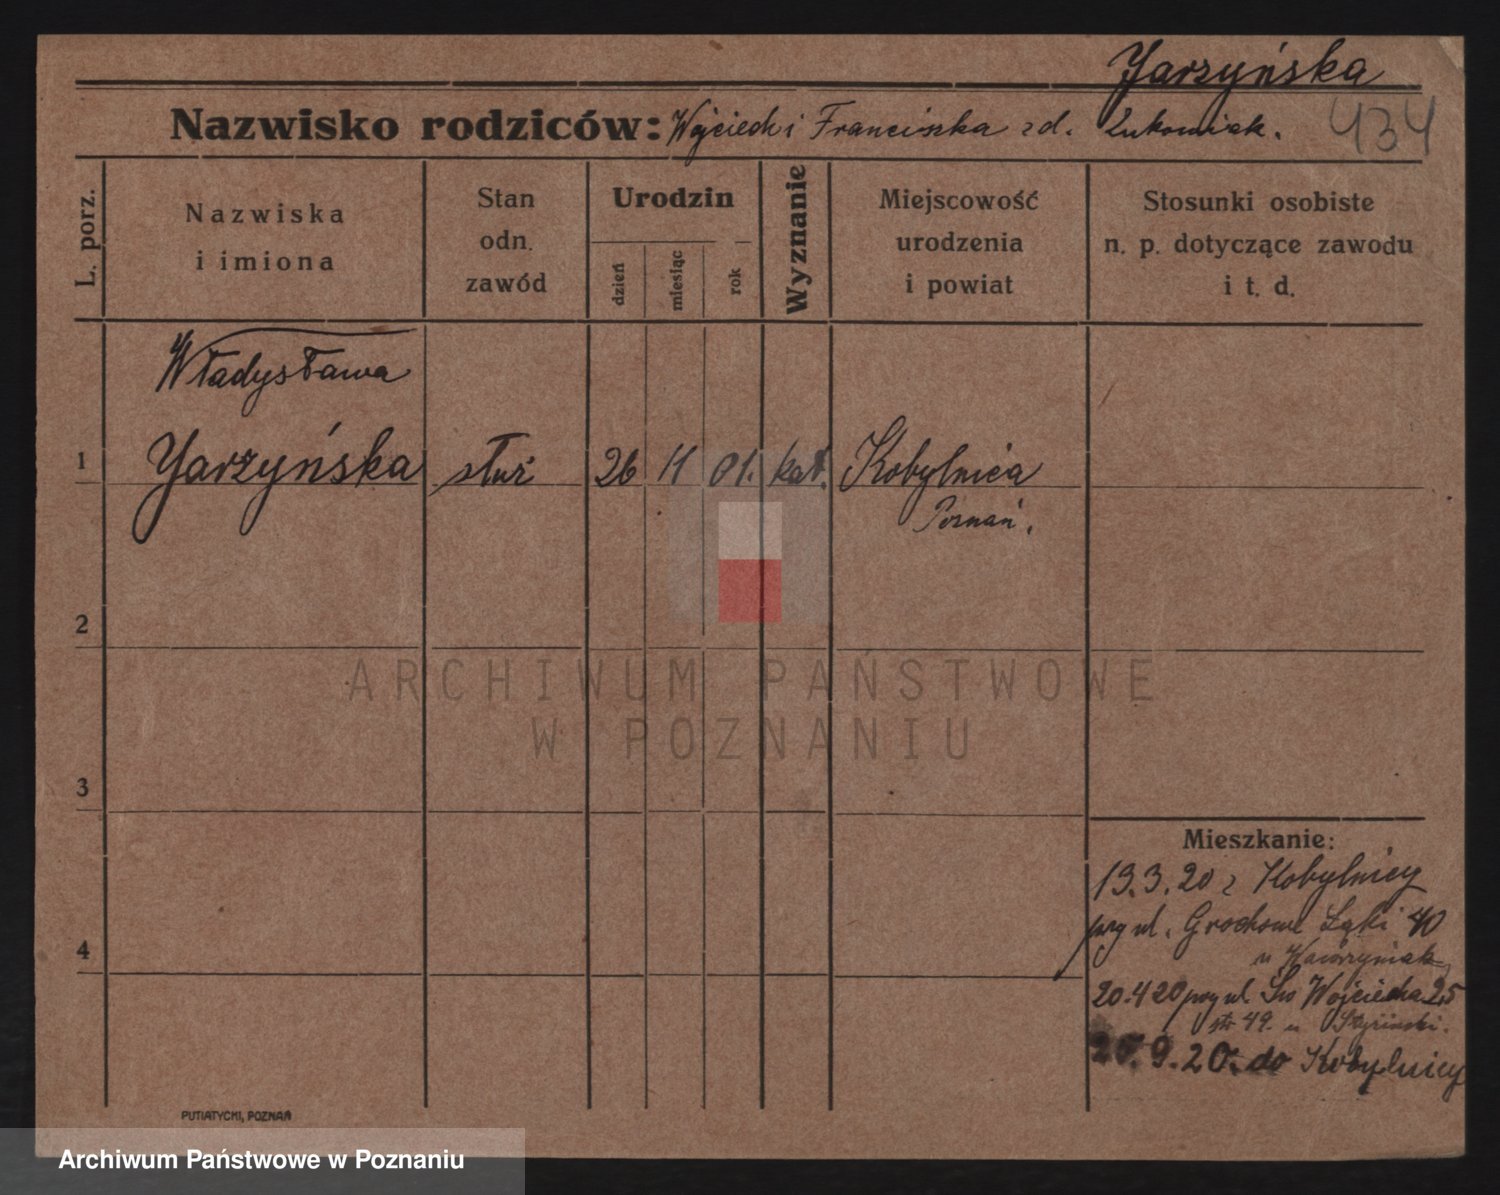 Yarzyńska
Nazwisko rodziców: Wojciech i Franciszka zd. Łukowiak.
434
L. porz.
Nazwiska
i imiona
Stan
odn.
zawód
Urodzin
dzień
miesiąc
rok
Wyznanie
Miejscowość
urodzenia
i powiat
Stosunki osobiste
n. p. dotyczące zawodu
i t. d.
Władysława
1 Yarzyńska służ 26 11 01. kat. Kobylnica
Poznań.
2
ARCHIWUM PAŃSTWOWE
W POZNANIU
3
4
Mieszkanie:
13.3.20 z Kobylnicy
przy ul. Grochowe Łąki 40
u Kawczyniak
20.4 20 przy ul. Św Wojciecha 25
str 49. u
20.9.20. do Kobylnicy
PUTIATYCKI, POZNAŃ
Archiwum Państwowe w Poznaniu